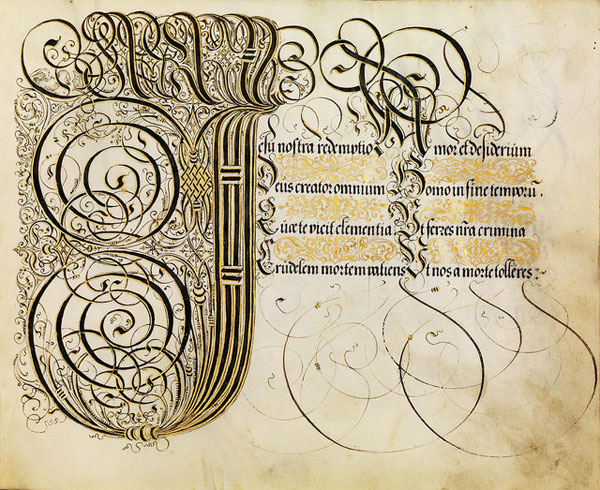 Jesu nostra redemptio Amor et desiderium
Deus creator omnium Homo in fine temporũ.
Quæ te vicit clementia Ut ferres nr̃a crimina
Crudelem mortem patiens Ut nos a morte tolleres: